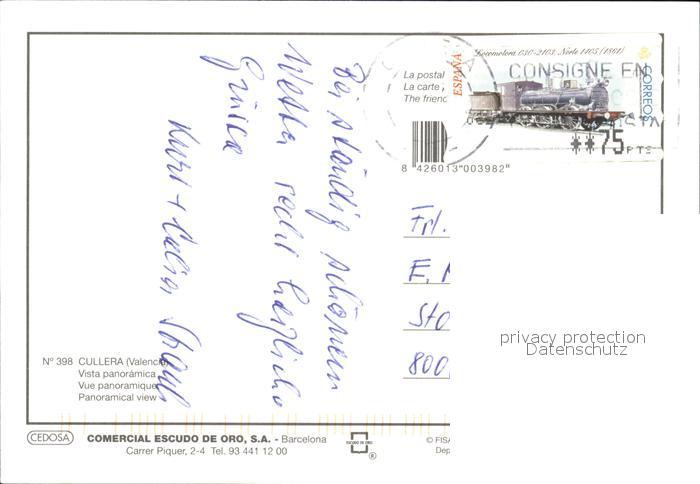 Locomotora 030-2103, Norte 1105 (1861)
ESPAÑA
CORREOS
CONSIGNE EN
**75 PTS
La postal
La carte
The friend
8 426013 003982
Bei ständig schönem
Wetter recht herzliche
Grüsse
Kurt +
Frl.
E.
Sto
800
privacy protection
Datenschutz
Nº 398 CULLERA (Valencia)
Vista panorámica
Vue panoramique
Panoramical view
CEDOSA
COMERCIAL ESCUDO DE ORO, S.A. - Barcelona
Carrer Piquer, 2-4 Tel. 93 441 12 00
ESCUDO DE ORO
®
© FISA
Dep